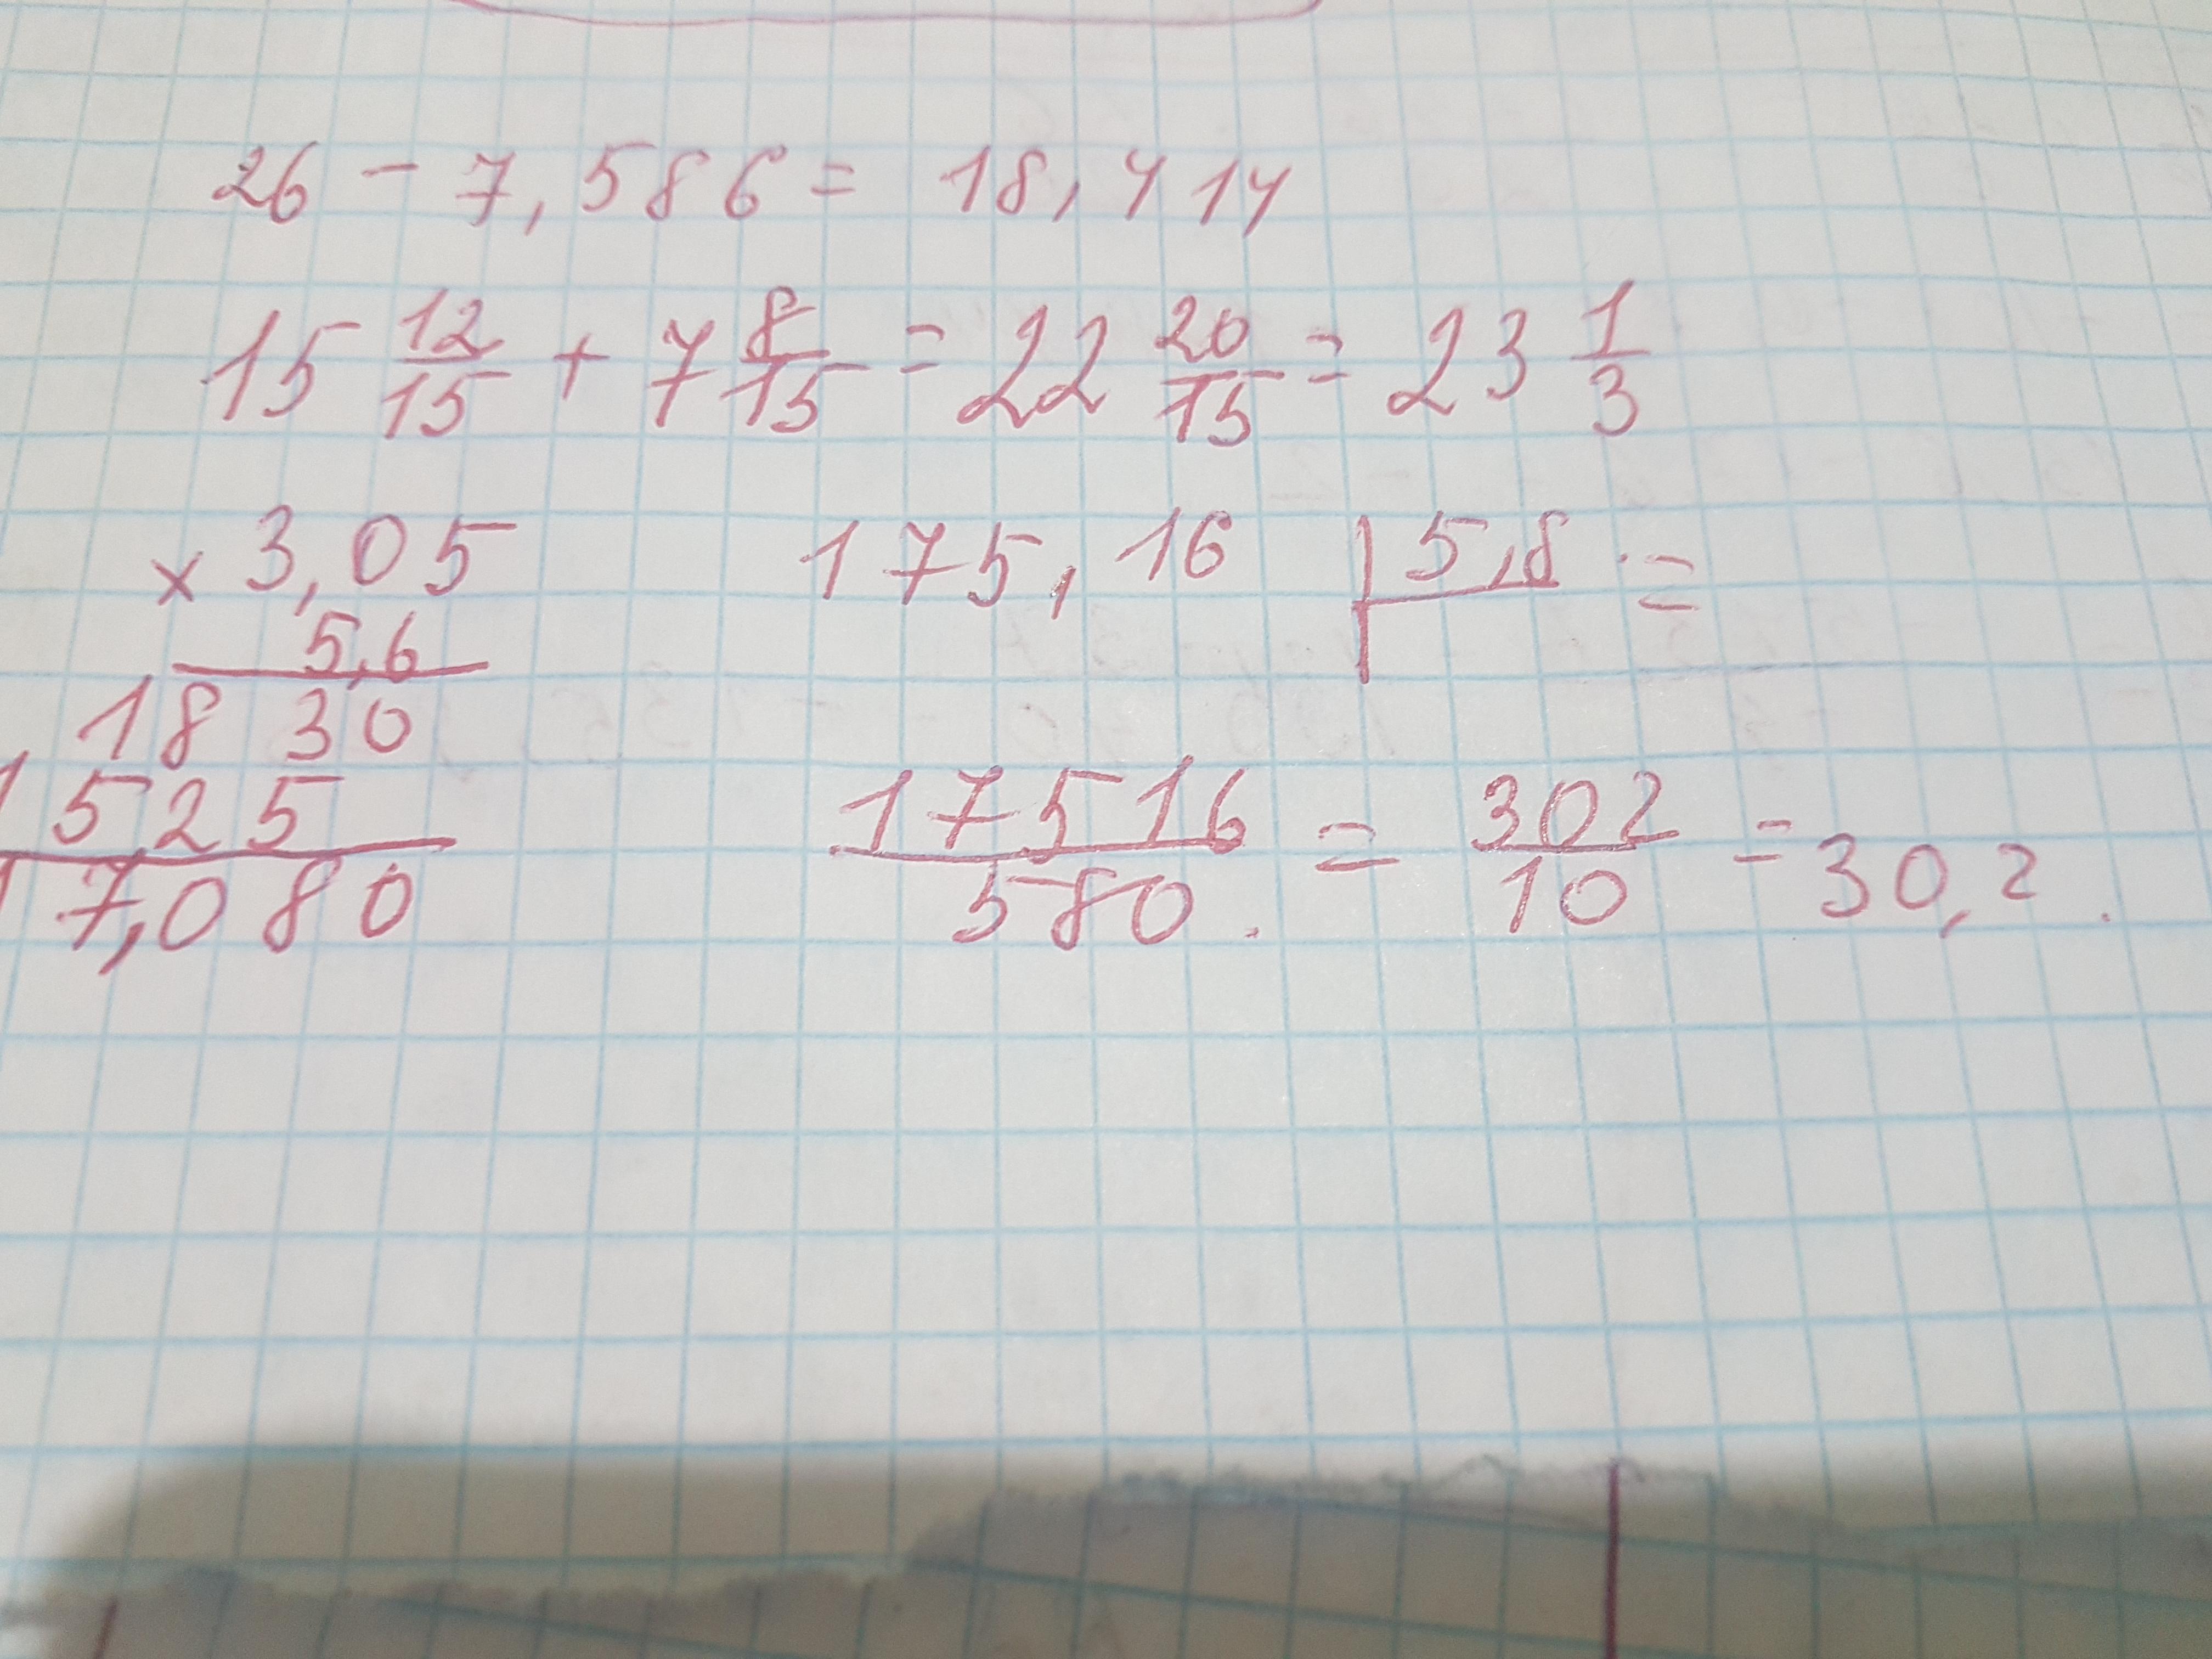 26 - 7,586 = 18,414
15 12/15 + 7 8/15 = 22 20/15 = 23 1/3
× 3,05
5,6
18 30
1525
17,080
175,16 | 5,8 =
17516/580 = 302/10 = 30,2.